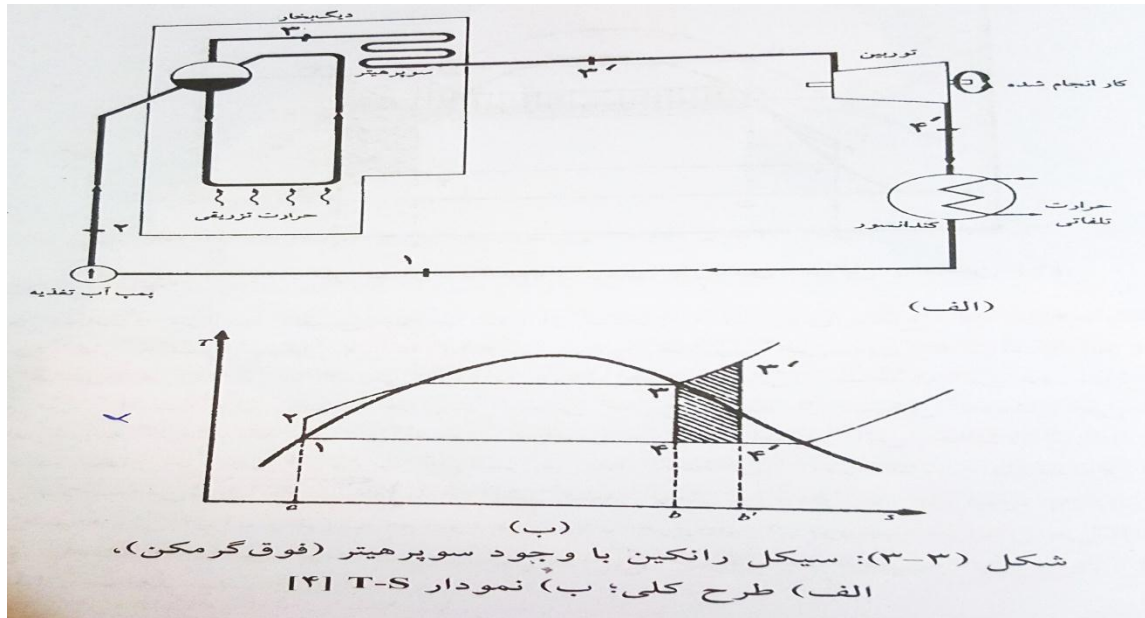 دیگ بخار
۳
سوپرهیتر
۳′
توربین
کار انجام شده
۴′
حرارت تزریقی
حرارت
تلفاتی
کندانسور
۲
۱
پمپ آب تغذیه
(الف)
T
۲
۱
۳
۳′
۴
۴′
a
b
b′
s
(ب)
شکل (۳-۳): سیکل رانکین با وجود سوپرهیتر (فوق گرمکن)،
الف) طرح کلی؛ ب) نمودار T-S [۴]